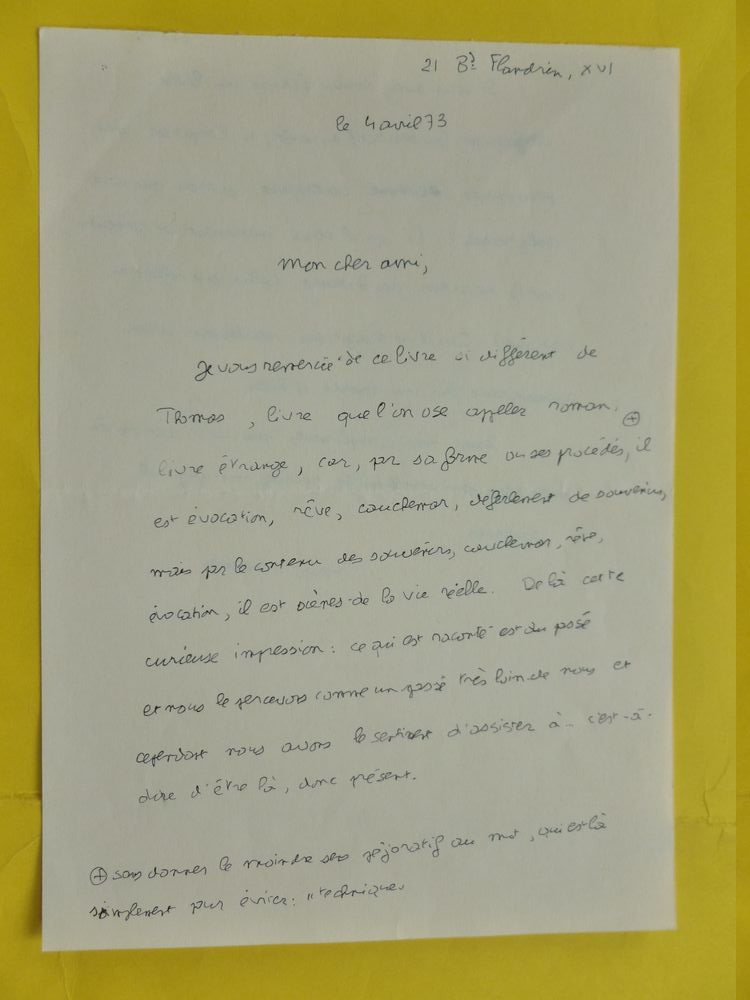 21 Bd Flandrin, XVI
le 4 avril 73
Mon cher ami,
Je vous remercie de ce livre si différent de
Thomas, livre que l'on ose appeler roman.
livre étrange, car, par sa forme ou ses procédés, ⊕ il
est évocation, rêve, cauchemar, déferlement de souvenirs,
mais par le contenu des souvenirs, cauchemar, rêve,
évocation, il est scènes de la vie réelle. De là cette
curieuse impression : ce qui est raconté est du passé
et nous le percevons comme un passé très loin de nous et
cependant nous avons le sentiment d'assister à... c'est-à-
dire d'être là, donc présent.
⊕ sans donner le moindre sens péjoratif au mot, qui est là
simplement pour éviter : "technique"